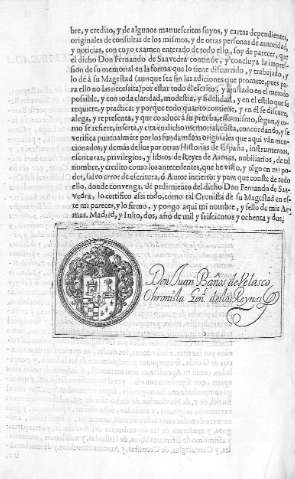 bre, y credito, y de algunos manuscritos suyos, y cartas dependientes,
originales de consultas de los mismos, y de otras personas de autoridad,
y noticias, con cuyo examen enterado de todo ello, soy de parecer, que
el dicho Don Fernando de Saavedra continùe, y concluya la impres-
sion de su memorial en la forma que lo tiene discurrido, y trabajado, y
lo dè à su Magestad (aunque sea sin las adiciones que promete, pues pa-
ra ello no las necessita) por estar todo el escrito, y ajustado en el metodo
possible, y con toda claridad, modestia, y fidelidad, y en el estilo que se
requiere, y practica: y porque todo quanto contiene, y en èl se discurre,
alega, y representa, y que conduce à su prueba, es
mo se refiere, inserta, y cita en dicho memorial, està, concordando, y se
verifica puntualmente por los fundamentos originales que aqui vàn men-
cionados, y demàs dellos por otras Historias de España, instrumentos,
escrituras, privilegios, y libros de Reyes de Armas, nobiliarios, de tal
nombre, y credito como los antecedentes, que he visto, y tengo en mi po-
der, salvo error de escritura, ò Autor incierto: y para que conste de todo
ello, donde convenga, de pedimiento del dicho Don Fernando de Saa-
vedra, lo certifico assi todo, como tal Cronista de su Magestad en es-
te mi parecer, y lo firmo, y pongo aqui mi nombre, y sello de mis Ar-
mas. Madrid, y Iulio, dos, año de mil y seiscientos y ochenta y dos,
Don Juan Baños de Velasco,
Chronista